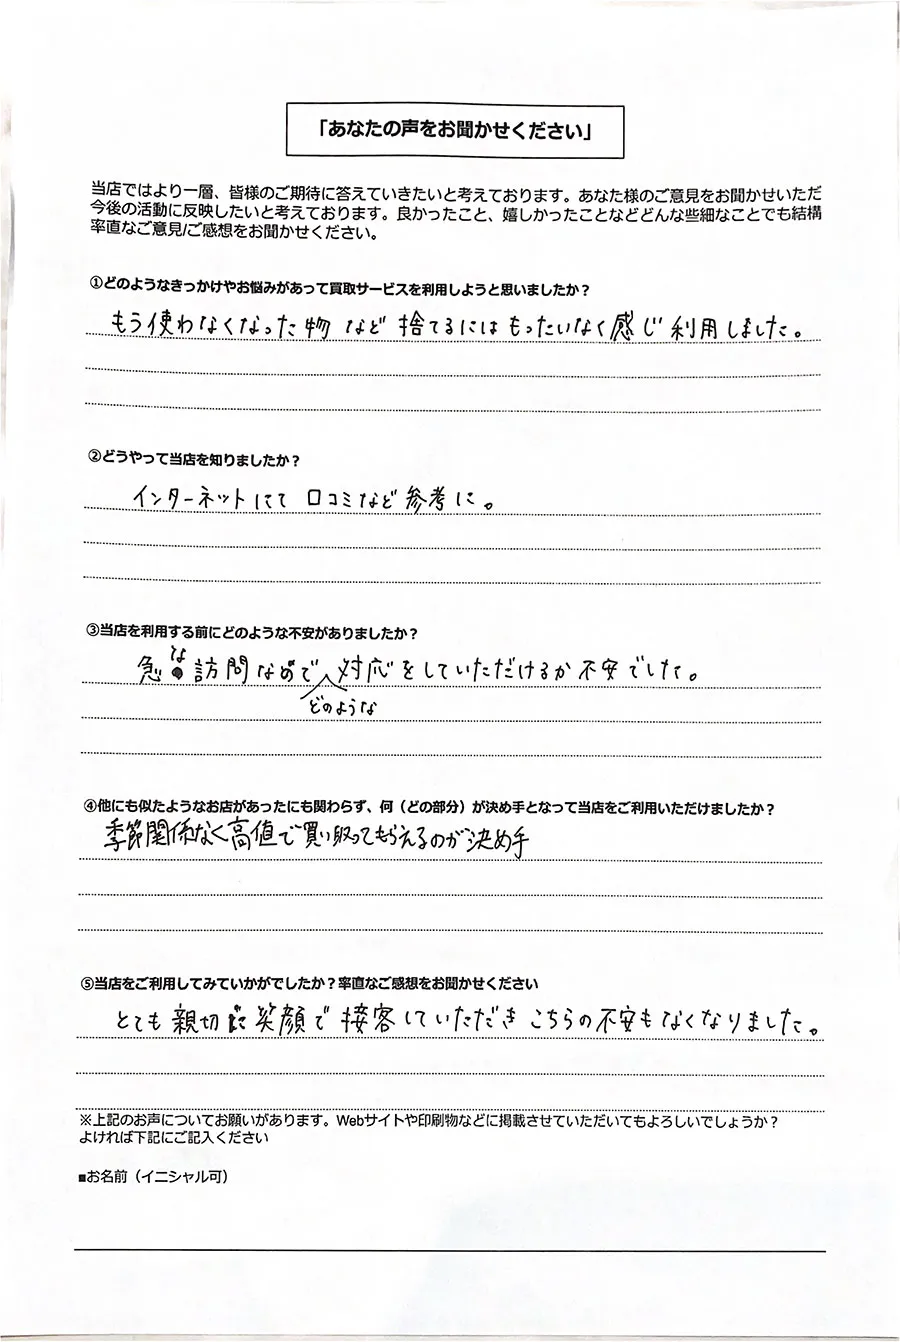 「あなたの声をお聞かせください」
当店ではより一層、皆様のご期待に答えていきたいと考えております。あなた様のご意見をお聞かせいただ
今後の活動に反映したいと考えております。良かったこと、嬉しかったことなどどんな些細なことでも結構
率直なご意見/ご感想をお聞かせください。
①どのようなきっかけやお悩みがあって買取サービスを利用しようと思いましたか？
もう使わなくなった物 など 捨てるにはもったいなく感じ利用しました。
②どうやって当店を知りましたか？
インターネットにて 口コミなど参考に。
③当店を利用する前にどのような不安がありましたか？
急な訪問なので対応をしていただけるか不安でした。
どのような
④他にも似たようなお店があったにも関わらず、何（どの部分）が決め手となって当店をご利用いただけましたか？
季節関係なく高値で買い取ってもらえるのが決め手
⑤当店をご利用してみていかがでしたか？率直なご感想をお聞かせください
とても親切に笑顔で接客していただきこちらの不安もなくなりました。
※上記のお声についてお願いがあります。Webサイトや印刷物などに掲載させていただいてもよろしいでしょうか？
よければ下記にご記入ください
■お名前（イニシャル可）